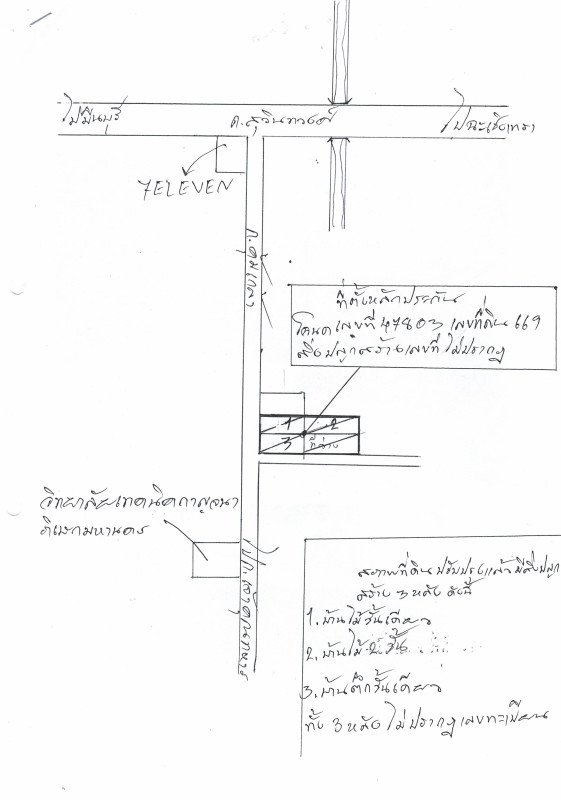 ไปมีนบุรี
ถ.สุวินทวงศ์
ไปฉะเชิงเทรา
7 ELEVEN
ถ.คุมเกล้า
ที่ตั้งหลักประกัน
โฉนดเลขที่ 47803 เลขที่ดิน 669
สิ่งปลูกสร้างเลขที่ ไม่ปรากฏ
1
2
3
ที่ว่าง
วิทยาลัยเทคนิคกาญจนา
ภิเษกมหานคร
ไปถ.เจ้าคุณทหาร
สภาพที่ดินปรับปรุงแล้วมีสิ่งปลูก
สร้าง 3 หลัง ดังนี้
1. บ้านไม้ชั้นเดียว
2. บ้านไม้ 2 ชั้น
3. บ้านตึกชั้นเดียว
ทั้ง 3 หลัง ไม่ปรากฏเลขทะเบียน